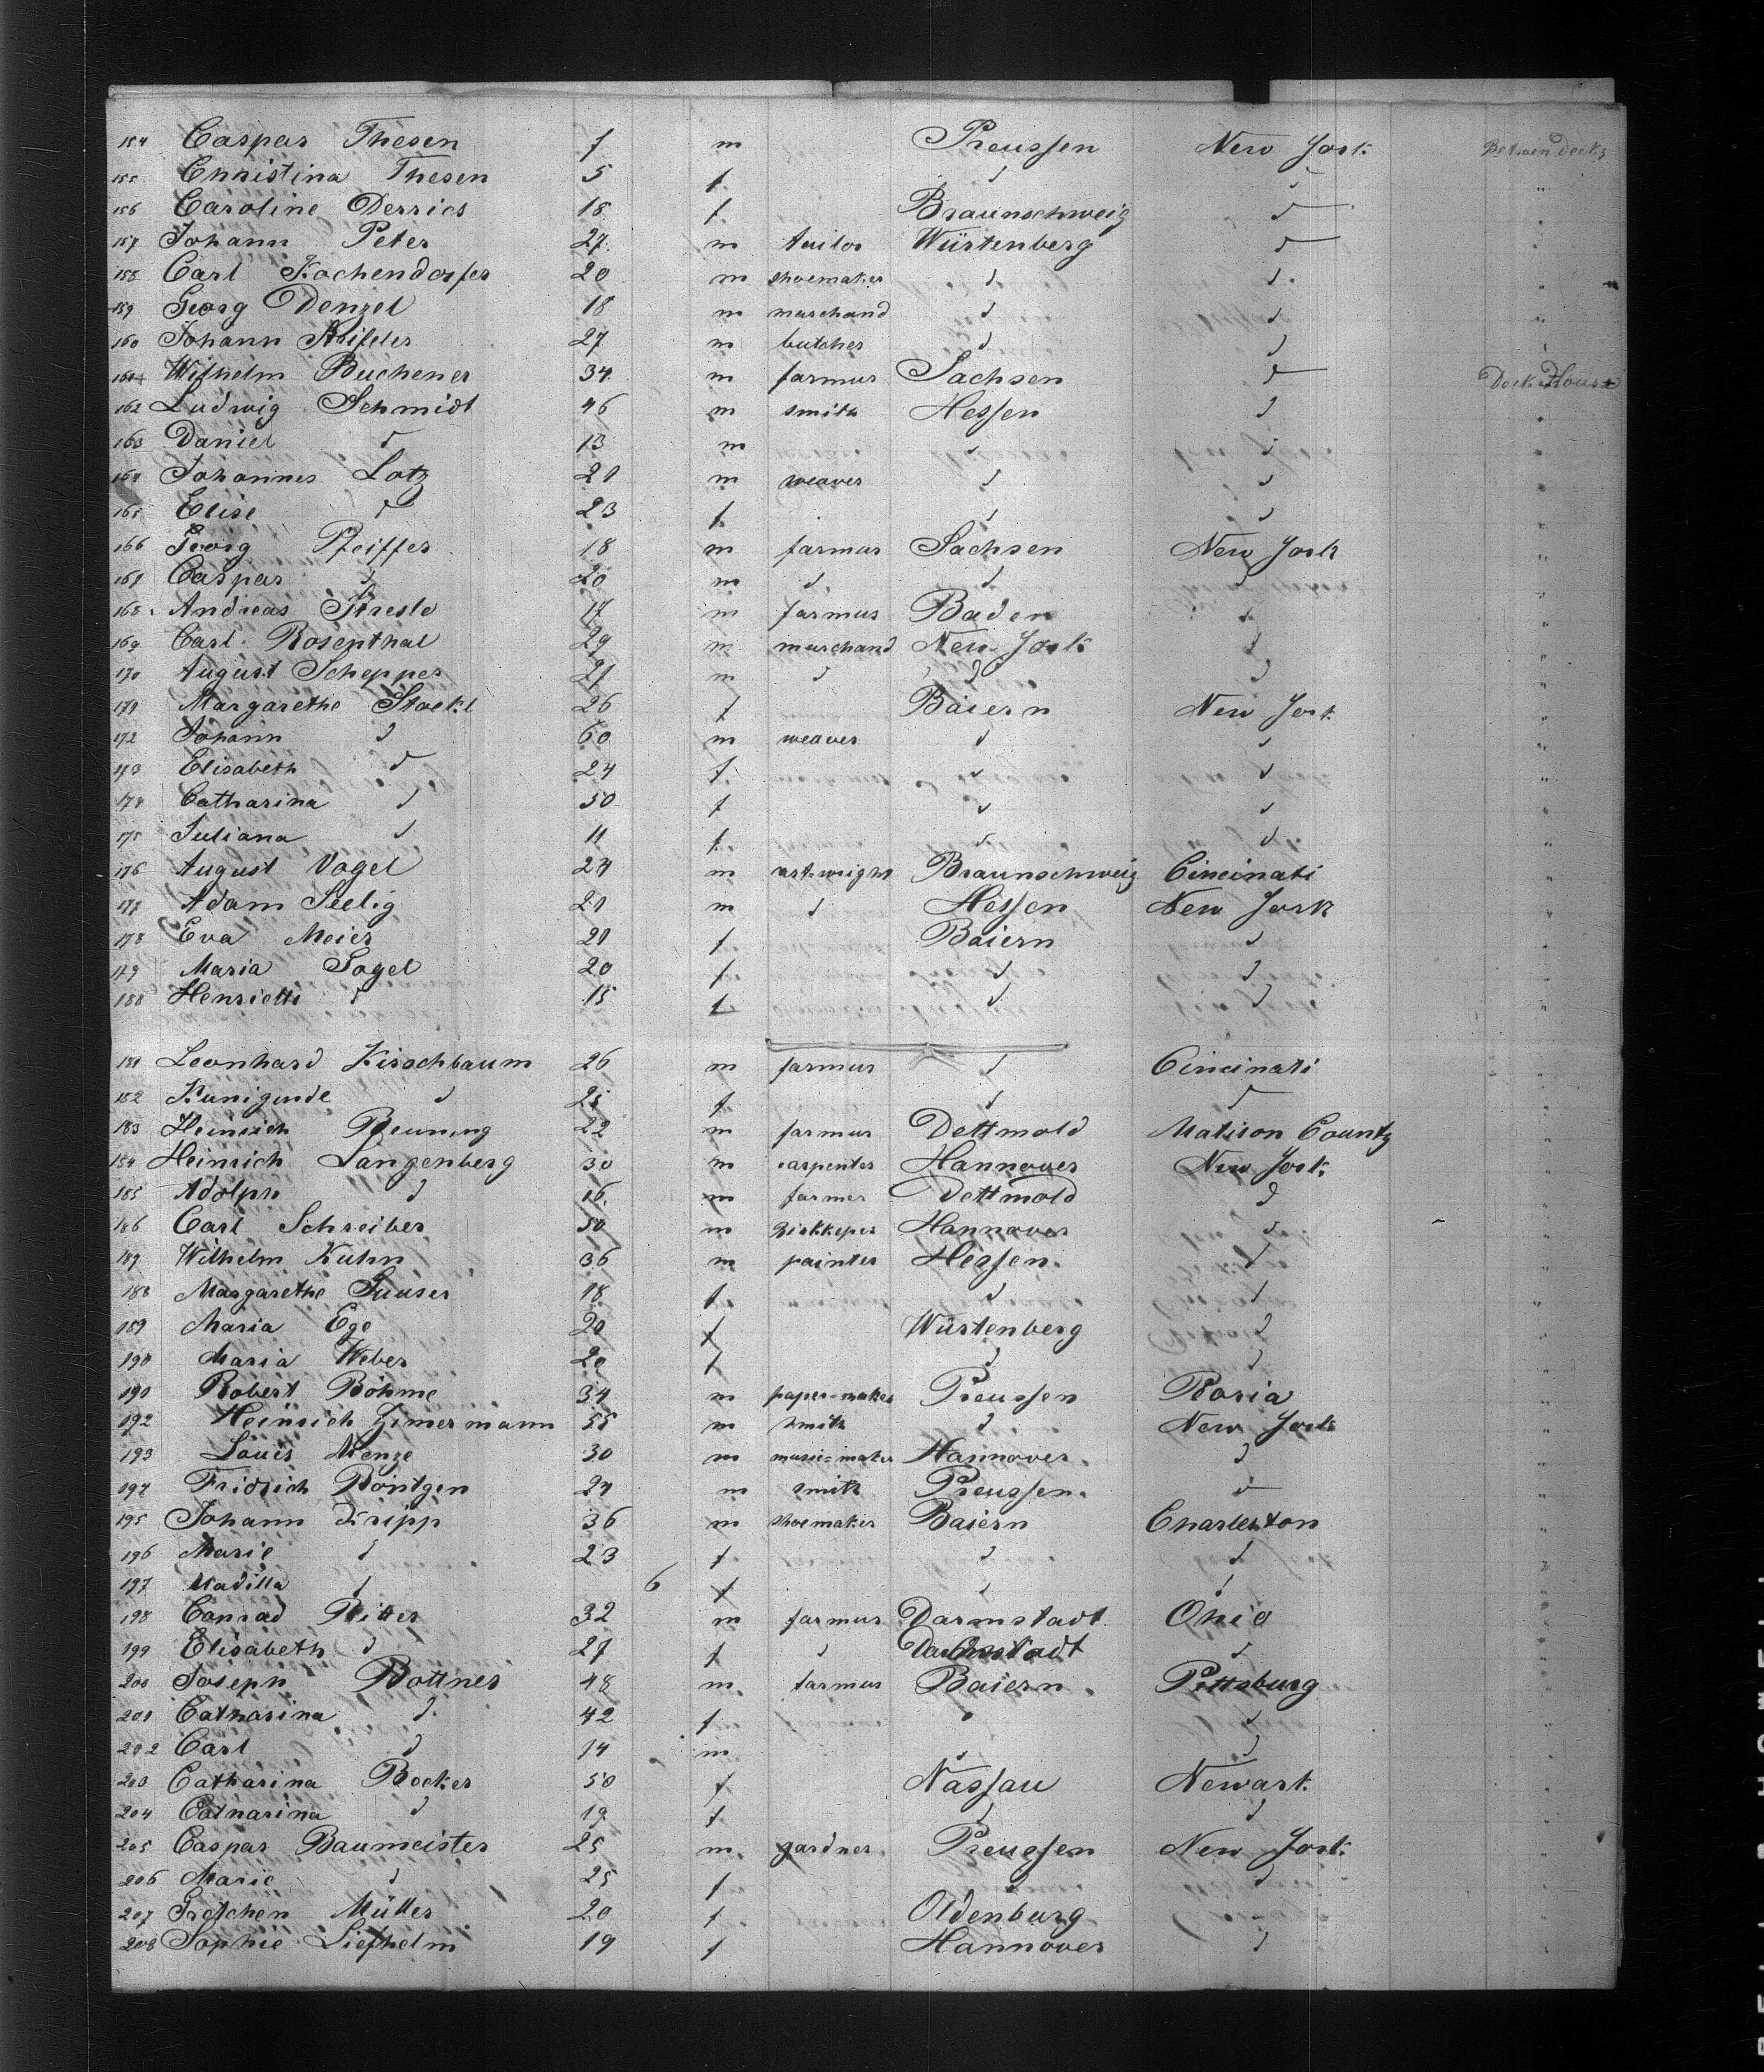 154 Caspar Thesen 7 m Preussen New York Between decks
155 Christina Thesen 5 f d d "
156 Caroline Derries 18 f Braunschweig d "
157 Johann Peter 27 m tailor Würtenberg d "
158 Carl Kochendorfer 20 m shoemaker d d "
159 Georg Denzel 18 m marchand d d "
160 Johann 27 m butcher d d "
161 Wilhelm Buchener 34 m farmur Sachsen d Deck House
162 Ludwig Schmidt 46 m smith Hessen d "
163 Daniel d 13 m d d "
164 Johannes Lotz 21 m weaver d d "
165 Elise d 23 f d d "
166 Georg Pfeiffer 18 m farmur Sachsen New York "
167 Caspar d 20 m d d d "
168 Andreas 17 m farmur Baden d "
169 Carl Rosenthal 29 m marchand New York d "
170 August Schepper 21 m d d d "
171 Margarethe Stoekl 26 f Baiern New York "
172 Johann d 60 m weaver d d "
173 Elisabeth d 24 f d d "
174 Catharina d 50 f d d "
175 Juliana d 11 f d d "
176 August Vogel 24 m cart-wright Braunschweig Cincinati "
177 Adam Seelig 21 m d Hessen New York "
178 Eva Meier 21 f Baiern d "
179 Maria Sogel 20 f d d "
180 Henriette d 15 f d d "
181 Leonhard Kirschbaum 26 m farmur d Cincinati "
182 Kunigunde d 25 f d d "
183 Heinrich Beuning 22 m farmur Dettmold Matison County "
184 Heinrich Langenberg 30 m carpenter Hannover New York "
185 Adolph d 16 m farmer Dettmold d "
186 Carl Schreiber 50 m Hannover d "
187 Wilhelm Kuhn 36 m painter Hessen d "
188 Margarethe 18 f d d "
189 Maria Ege 20 f Würtenberg d "
190 Maria Weber 20 f d d "
191 Robert Böhme 34 m paper-maker Preussen Peoria "
192 Heinrich Zimermann 55 m smith d New York "
193 Louis Menze 30 m music-maker Hannover d "
194 Fridrich Röntgen 24 m smith Preussen d "
195 Johann Kripp 36 m shoemaker Baiern Charleston "
196 Marie d 23 f d d "
197 d 6 f d d "
198 Conrad Ritter 32 m farmur Darmstadt Ohio "
199 Elisabeth d 27 f d Darmstadt d "
200 Joseph Bottner 48 m farmur Baiern Pittsburg "
201 Catharina d 42 f " d "
202 Carl d 14 m d d "
203 Catharina Becker 50 f Nassau Newark "
204 Catharina d 19 f d d "
205 Caspar Baumeister 25 m gardner Preussen New York "
206 Marie d 25 f d d "
207 Gretchen Müller 20 f Oldenburg d "
208 Sophie Liefhelm 19 f Hannover d "